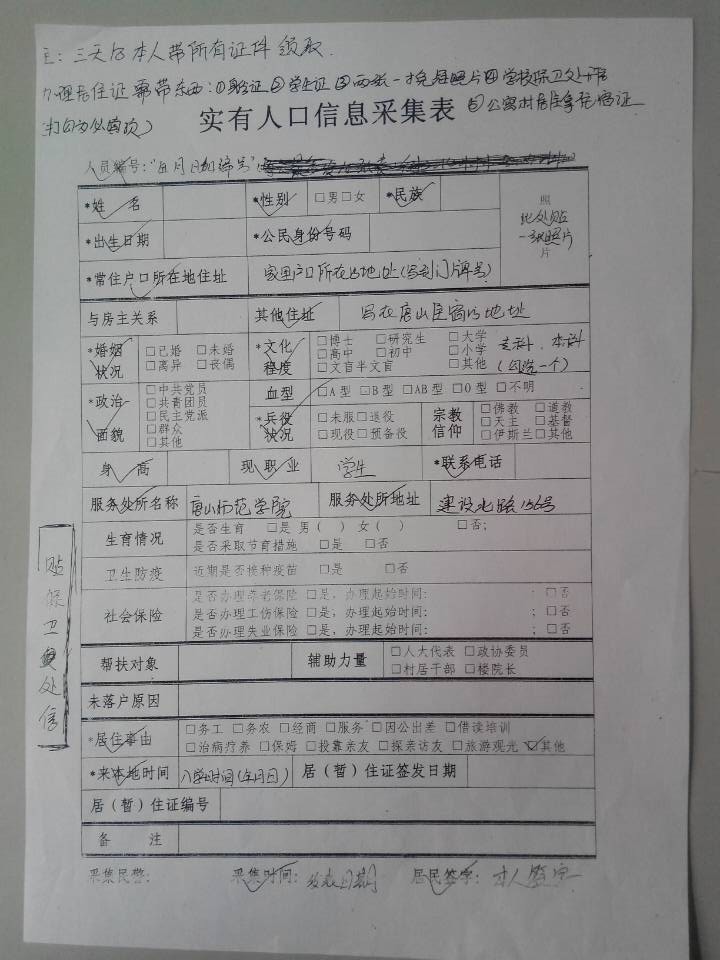 注：三天后本人带所有证件领取.
办理居住证需带东西：①身份证②学生证③两张一寸免冠照片④学校保卫处开信
打勾为必填项） ⑤公寓
实有人口信息采集表
人员编号：“年月日加编号”
*姓 名 *性别 □男□女 *民族 照
此处贴
一张照片
片
*出生日期 *公民身份号码
*常住户口所在地住址 家里户口所在的地址(写到门牌号)
与房主关系 其他住址 写在唐山住宿的地址
*婚姻状况 □已婚 □未婚 □离异 □丧偶
*文化程度 □博士 □研究生 □大学 □高中 □初中 □小学 □文盲半文盲 □其他 专科、本科 (勾选一个)
*政治面貌 □中共党员 □共青团员 □民主党派 □群众 □其他
血型 □A型 □B型 □AB型 □O型 □不明
*兵役状况 □未服□退役 □现役□预备役
宗教信仰 □佛教 □道教 □天主 □基督 □伊斯兰□其他
身 高 现职业 学生 *联系电话
服务处所名称 唐山师范学院 服务处所地址 建设北路156号
生育情况 是否生育 □是 男( ) 女( ) □否;
是否采取节育措施 □是 □否
卫生防疫 近期是否接种疫苗 □是 □否
社会保险 是否办理养老保险 □是，办理起始时间: ; □否
是否办理工伤保险 □是，办理起始时间: ; □否
是否办理失业保险 □是，办理起始时间: ; □否
帮扶对象 辅助力量 □人大代表 □政协委员
□村居干部 □楼院长
未落户原因
*居住事由 □务工 □务农 □经商 □服务 □因公出差 □借读培训
□治病疗养 □保姆 □投靠亲友 □探亲访友 □旅游观光 ☑其他
*来本地时间 入学时间(年月日) 居（暂）住证签发日期
居（暂）住证编号
备 注
采集民警: 采集时间: 发表日期 居民签字: 本人签字
贴保卫处信